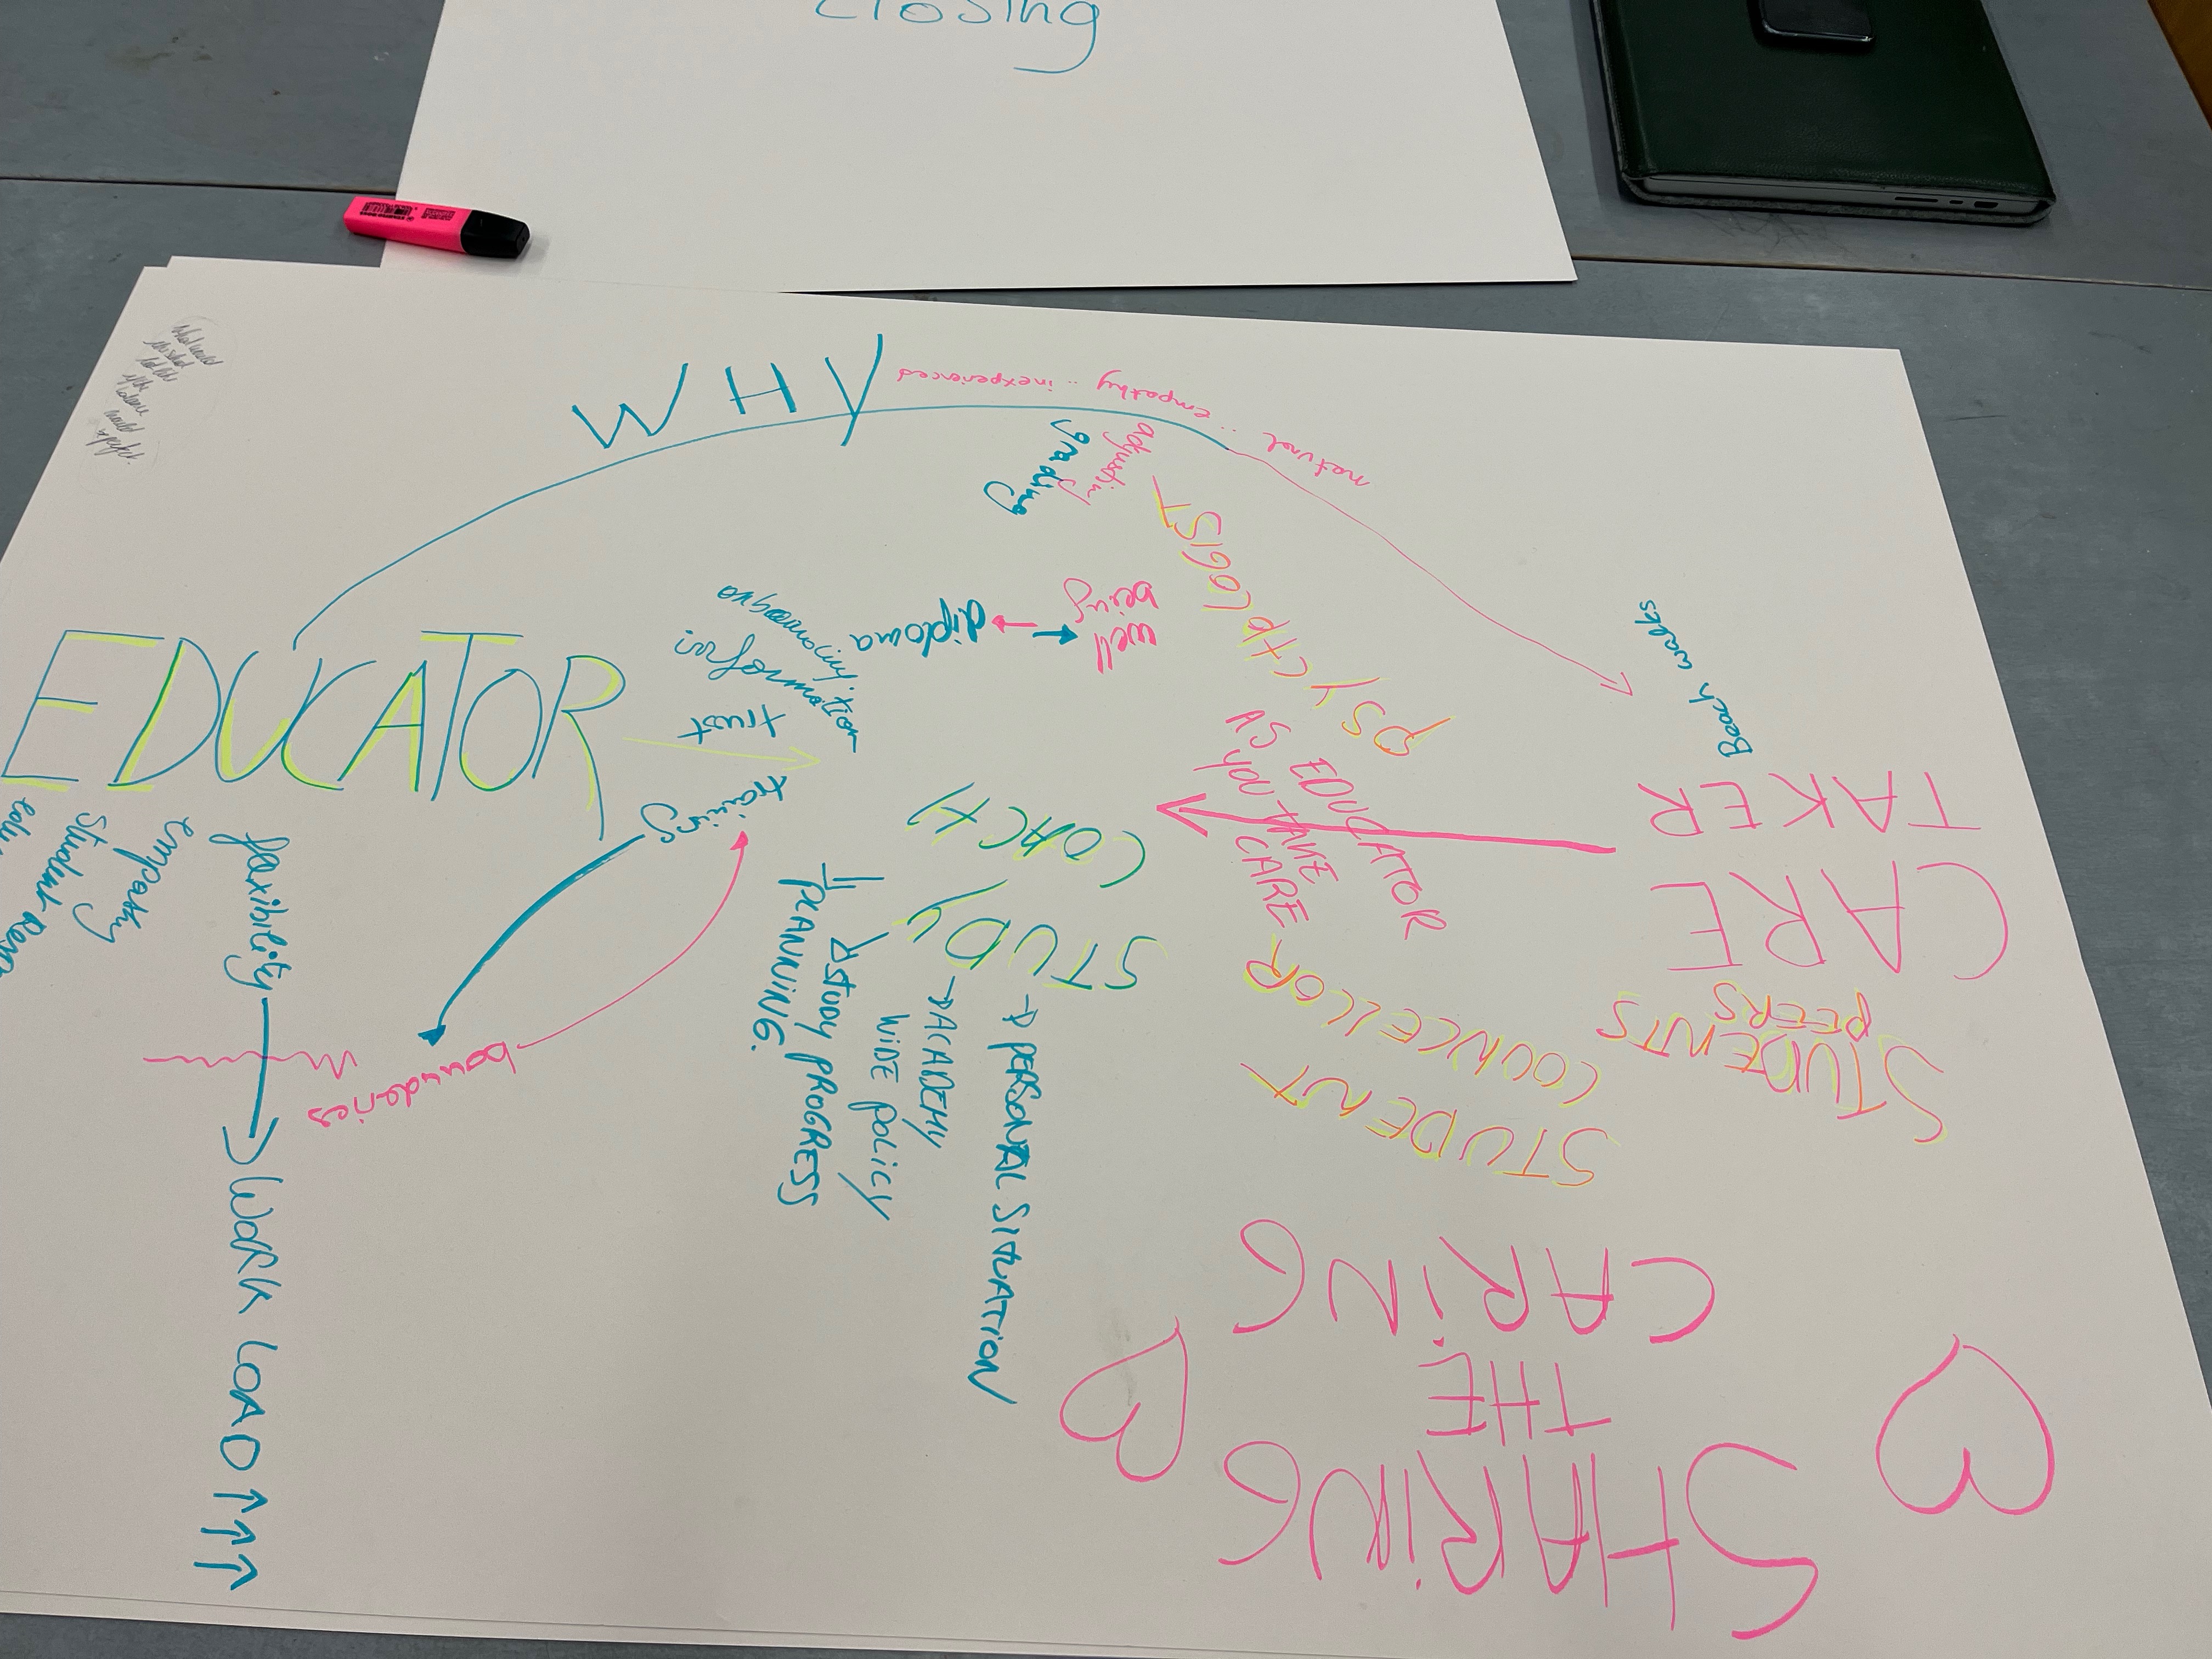 closing
WHY
inexperienced
..
empathy
..
natural
adjusting
grading
EDUCATOR
trust
information
diploma
well
being
PSYCHOLOGIST
Beach walks
CARE
TAKER
AS EDUCATOR
YOU TAKE
CARE
training
STUDY
COACH
→ PERSONAL SITUATION
→ ACADEMY
WIDE POLICY
STUDY PROGRESS
PLANNING.
STUDENT
COUNCELLOR
STUDENTS
PEERS
empathy
flexibility
WORK LOAD ↑↑↑
bouderies
SHARING
THE
CARING